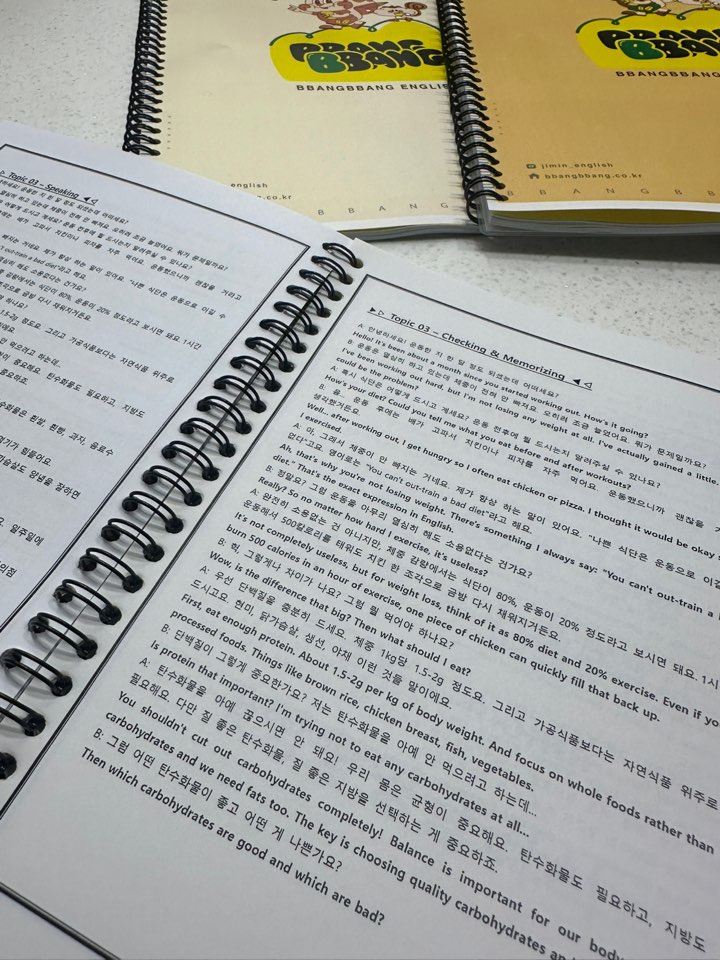 BBANG
BBANG
BBANGBBANG ENGLIS
english
co.kr
B B A N G B
BBANG
BBANGBBANG
jimin_english
bbangbbang.co.kr
B B A N G B B
Topic 03 – Speaking
안녕하세요! 운동한 지 한 달 정도 되셨는데 어떠세요?
열심히 하고 있는데 체중이 전혀 안 빠져요. 오히려 조금 늘었어요. 뭐가 문제일까요?
어떻게 드시고 계세요? 운동 전후에 뭘 드시는지 알려주실 수 있나요?
배가 고파서 치킨이나 피자를 자주 먹어요. 운동했으니까 괜찮을 거라고
빠지는 거네요. 제가 항상 하는 말이 있어요. "나쁜 식단은 운동으로 이길 수
out-train a bad diet"라고 해요.
열심히 해도 소용없다는 건가요?
감량에서는 식단이 80%, 운동이 20% 정도라고 보시면 돼요. 1시간
조각으로 금방 다시 채워지거든요.
하나요?
1.5-2g 정도요. 그리고 가공식품보다는 자연식품 위주로
안 먹으려고 하는데...
중요해요. 탄수화물도 필요하고, 지방도
중요하죠.
흰쌀, 흰빵, 과자, 음료수
힘들어요.
양념을 잘하면
일주일에
Topic 03 – Checking & Memorizing
A: 안녕하세요! 운동한 지 한 달 정도 되셨는데 어떠세요?
Hello! It's been about a month since you started working out. How's it going?
B: 운동은 열심히 하고 있는데 체중이 전혀 안 빠져요. 오히려 조금 늘었어요. 뭐가 문제일까요?
I've been working out hard, but I'm not losing any weight at all. I've actually gained a little.
could be the problem?
A: 혹시 식단은 어떻게 드시고 계세요? 운동 전후에 뭘 드시는지 알려주실 수 있나요?
How's your diet? Could you tell me what you eat before and after workouts?
B: 음... 운동 후에는 배가 고파서 치킨이나 피자를 자주 먹어요. 운동했으니까 괜찮을
생각했거든요.
Well... after working out, I get hungry so I often eat chicken or pizza. I thought it would be okay
I exercised.
A: 아, 그래서 체중이 안 빠지는 거네요. 제가 항상 하는 말이 있어요. "나쁜 식단은 운동으로 이길
없다"고요. 영어로는 "You can't out-train a bad diet"라고 해요.
Ah, that's why you're not losing weight. There's something I always say: "You can't out-train a
diet." That's the exact expression in English.
B: 정말요? 그럼 운동을 아무리 열심히 해도 소용없다는 건가요?
Really? So no matter how hard I exercise, it's useless?
A: 완전히 소용없는 건 아니지만, 체중 감량에서는 식단이 80%, 운동이 20% 정도라고 보시면 돼요. 1시
운동해서 500칼로리를 태워도 치킨 한 조각으로 금방 다시 채워지거든요.
It's not completely useless, but for weight loss, think of it as 80% diet and 20% exercise. Even if yo
burn 500 calories in an hour of exercise, one piece of chicken can quickly fill that back up.
B: 헉, 그렇게나 차이가 나요? 그럼 뭘 먹어야 하나요?
Wow, is the difference that big? Then what should I eat?
A: 우선 단백질을 충분히 드세요. 체중 1kg당 1.5-2g 정도요. 그리고 가공식품보다는 자연식품 위주로
드시고요. 현미, 닭가슴살, 생선, 야채 이런 것들 말이에요.
First, eat enough protein. About 1.5-2g per kg of body weight. And focus on whole foods rather than
processed foods. Things like brown rice, chicken breast, fish, vegetables.
B: 단백질이 그렇게 중요한가요? 저는 탄수화물을 아예 안 먹으려고 하는데...
Is protein that important? I'm trying not to eat any carbohydrates at all...
A: 탄수화물을 아예 끊으시면 안 돼요! 우리 몸은 균형이 중요해요. 탄수화물도 필요하고, 지방도
필요해요. 다만 질 좋은 탄수화물, 질 좋은 지방을 선택하는 게 중요하죠.
You shouldn't cut out carbohydrates completely! Balance is important for our body
carbohydrates and we need fats too. The key is choosing quality carbohydrates an
B: 그럼 어떤 탄수화물이 좋고 어떤 게 나쁜가요?
Then which carbohydrates are good and which are bad?